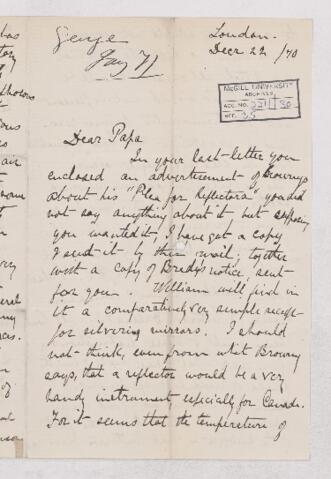 George
Jany 71
London.
Decr 22 / 70
McGILL UNIVERSITY
ARCHIVES
ACC. NO.
REF. 35
Dear Papa
In your last letter you
enclosed an advertisement of Brownys
about his "Plea for Reflectors" you did
not say anything about it, but supposing
you wanted it I have got a copy
& send it by this mail; together
with a copy of notice, sent
for you. William will find in
it a comparatively very simple receipt
for silvering mirrors. I should
not think, even from what Browny
says, that a reflector would be a very
handy instrument especially for Canada.
For it seems that the temperature of